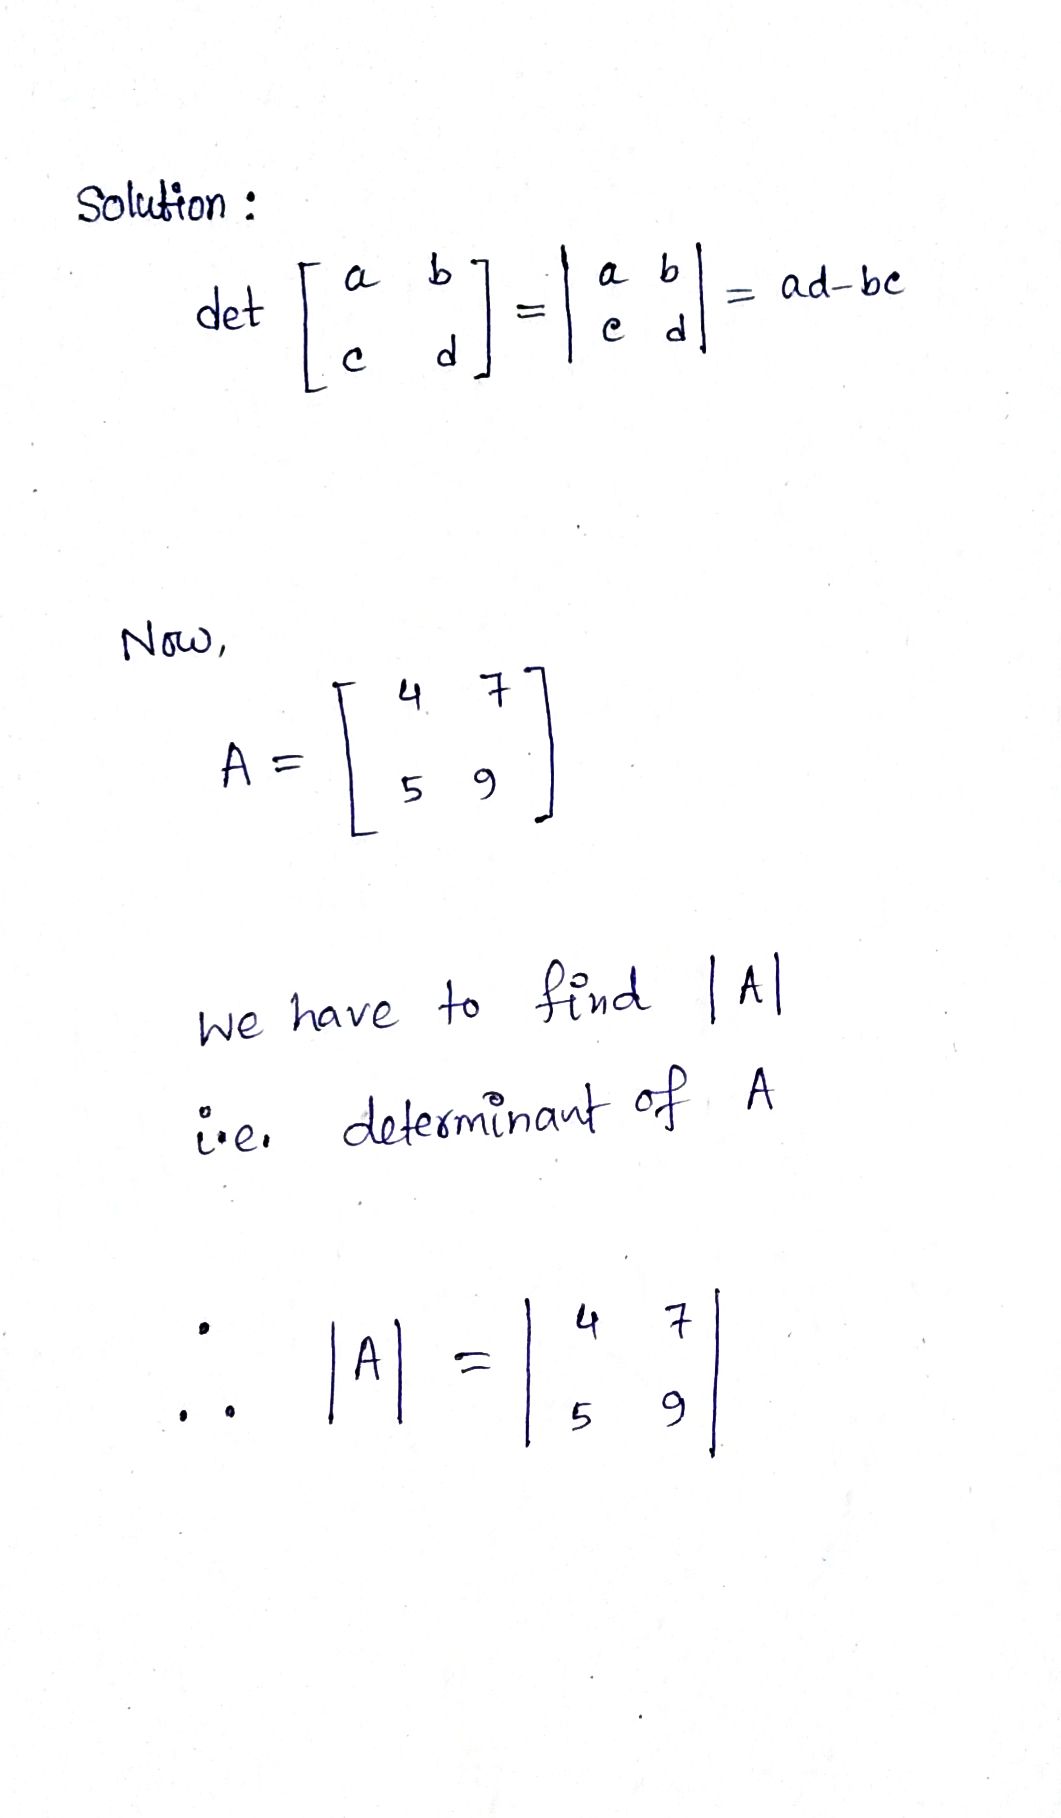 Solution :
det [ a b
c d ] = | a b
c d | = ad-bc
Now,
A = [ 4 7
5 9 ]
We have to find |A|
i.e. determinant of A
∴ |A| = | 4 7
5 9 |